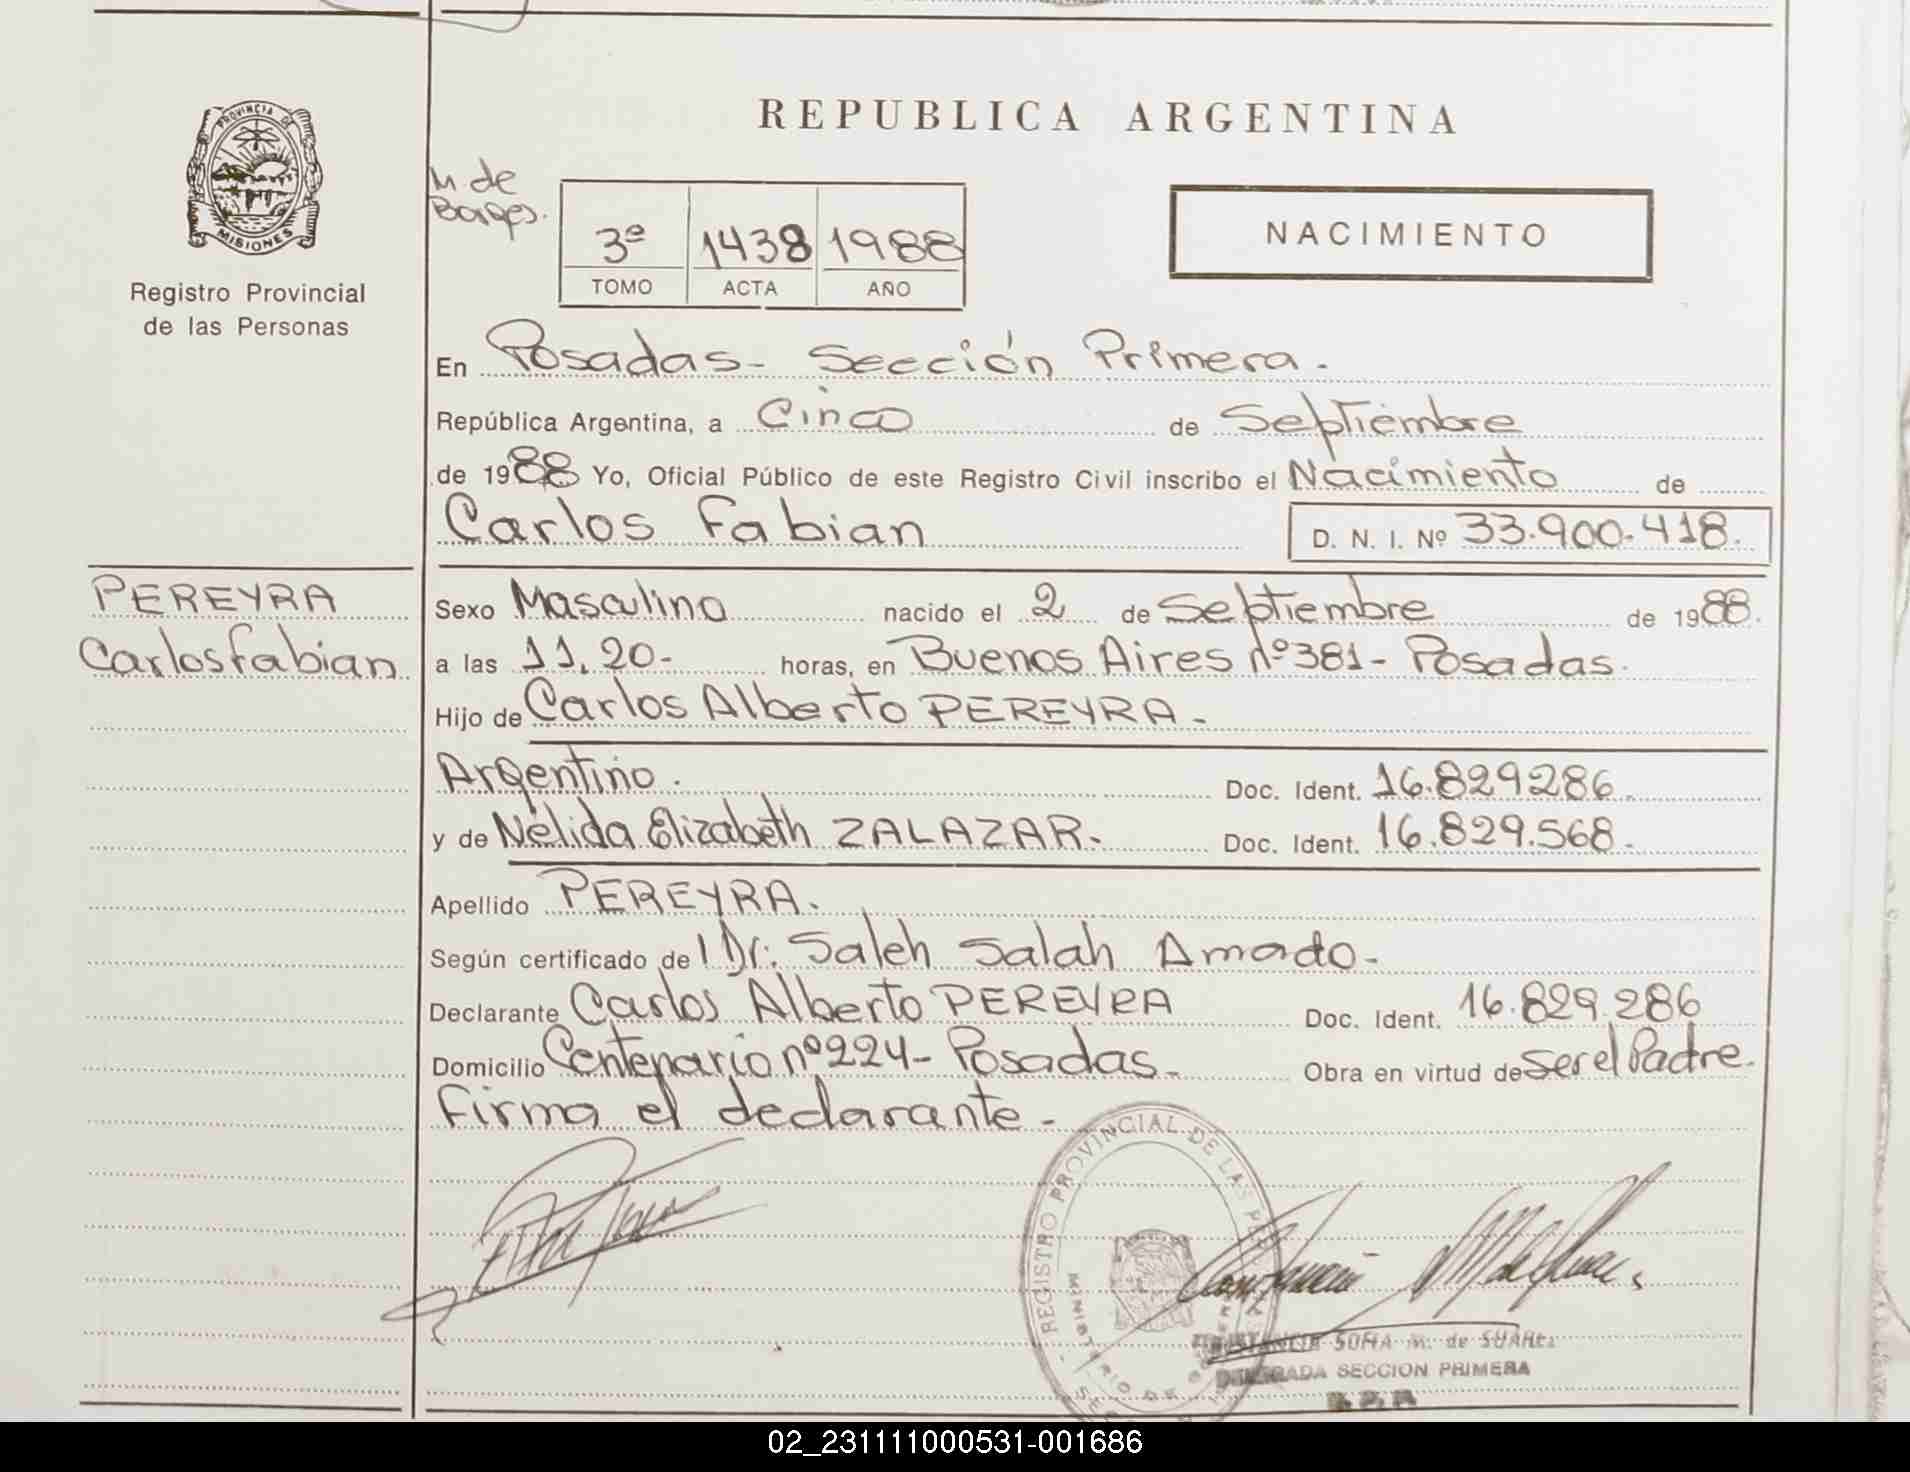 PROVINCIA DE
MISIONES
Registro Provincial
de las Personas
REPUBLICA ARGENTINA
M. de
Borges.
3º 1438 1988
TOMO ACTA AÑO
NACIMIENTO
En Posadas- Sección Primera.
República Argentina, a Cinco de Septiembre
de 1988 Yo, Oficial Público de este Registro Civil inscribo el Nacimiento de
Carlos Fabian D. N. I. Nº 33.900.418.
PEREYRA
Carlos Fabian
Sexo Masculino nacido el 2 de Septiembre de 1988.
a las 11.20- horas, en Buenos Aires nº 381- Posadas.
Hijo de Carlos Alberto PEREYRA-
Argentino. Doc. Ident. 16.829286.
y de Nélida Elizabeth ZALAZAR- Doc. Ident. 16.829.568.
Apellido PEREYRA.
Según certificado del Dr: Saleh Salah Amado-
Declarante Carlos Alberto PEREYRA Doc. Ident. 16.829.286
Domicilio Centenario nº 224- Posadas- Obra en virtud de ser el Padre.
Firma el declarante-
REGISTRO PROVINCIAL DE LAS
MINISTERIO DE
SOFIA M. de SUAREZ
DELEGADA SECCION PRIMERA
02_231111000531-001686